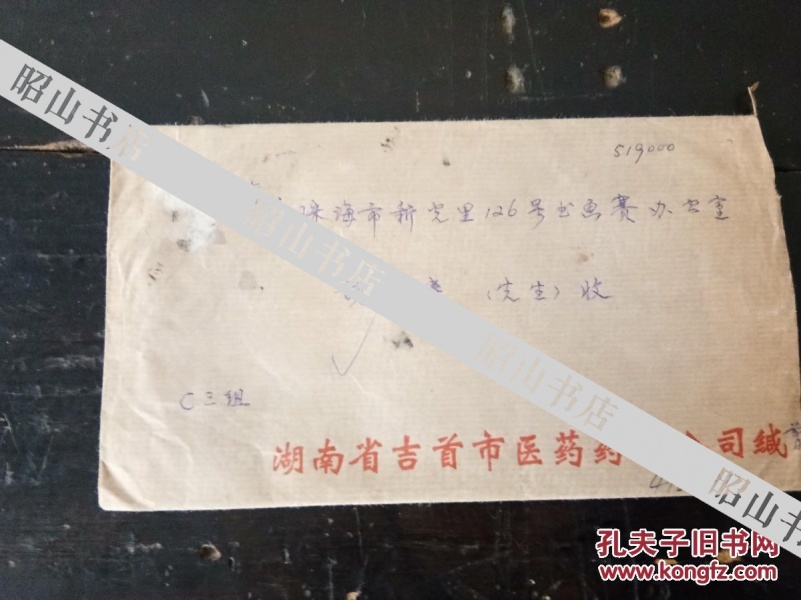 519000
珠海市新光里126号书画赛办公室
(先生)收
C三组
湖南省吉首市医药药 司缄
昭山书店
昭山书店
昭山书店
昭山书店
昭山书店
孔夫子旧书网
www.kongfz.com